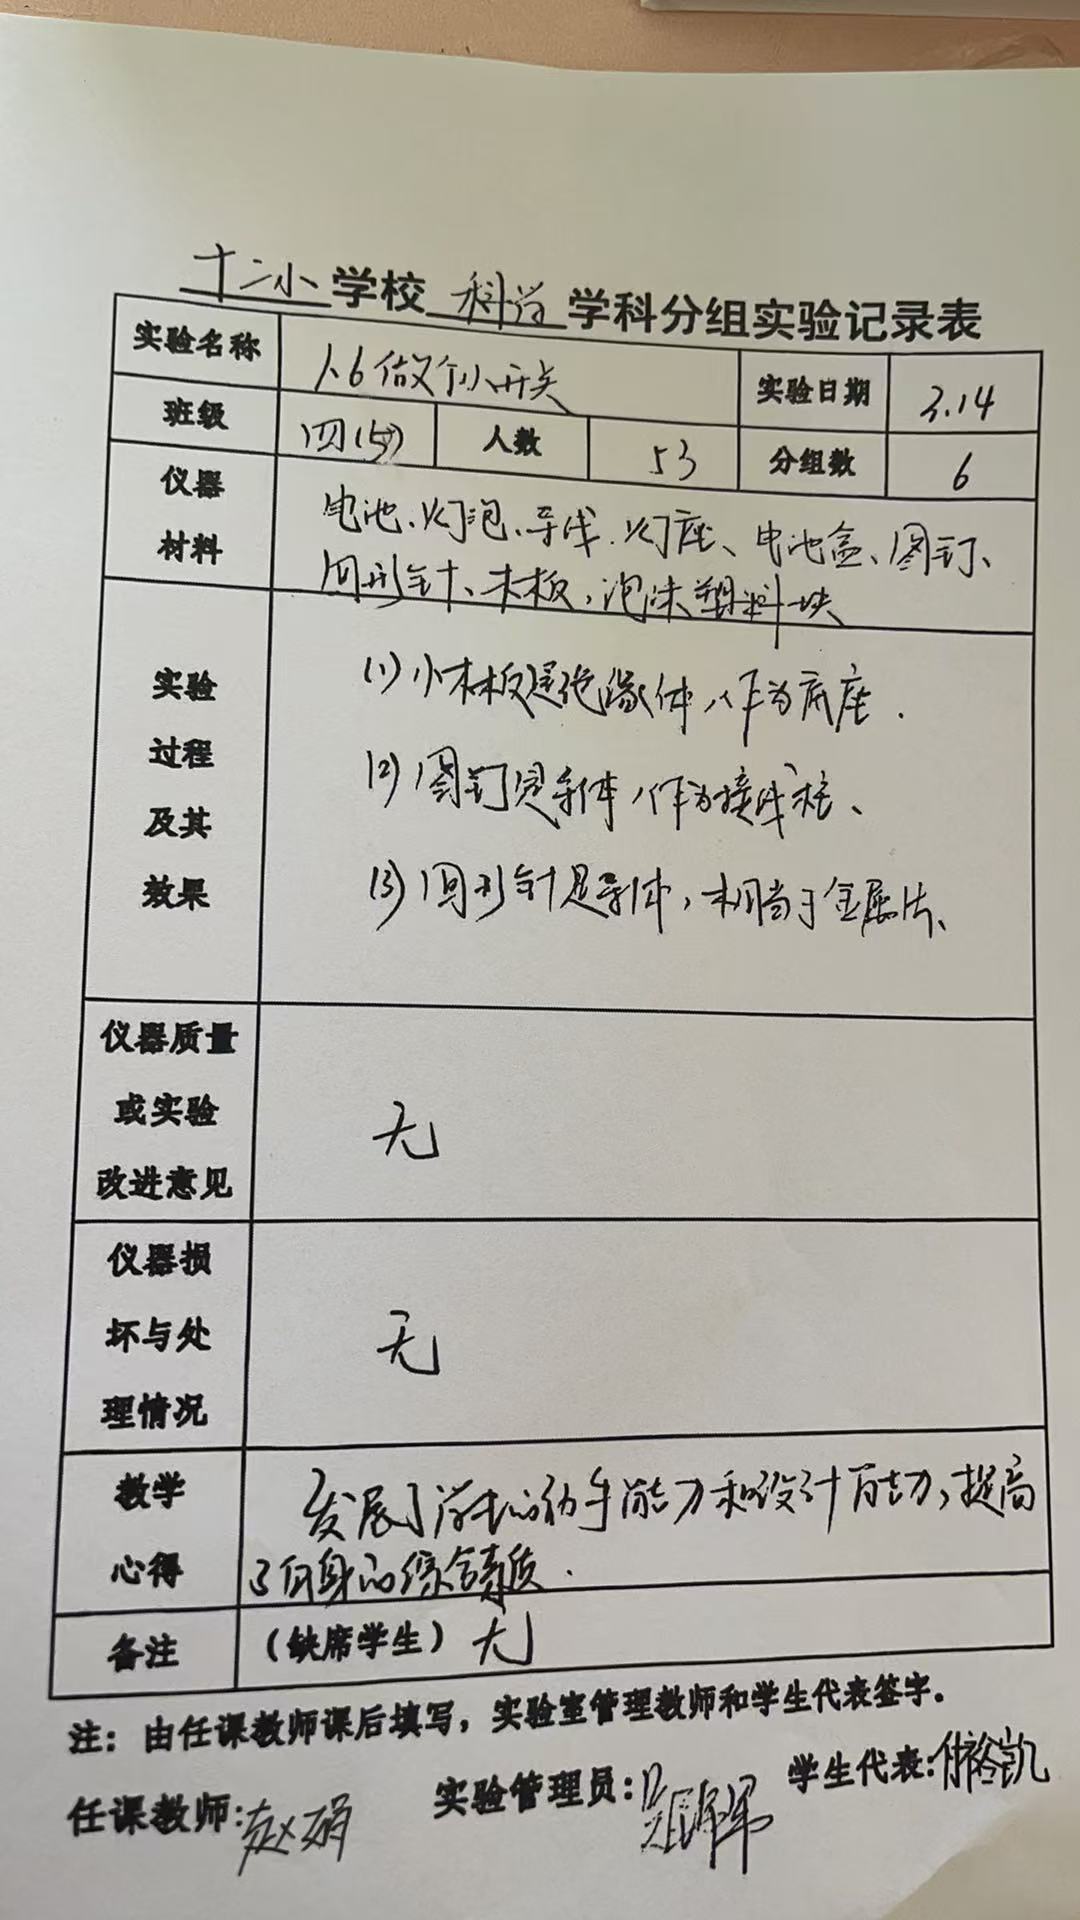 十二小学校 科学 学科分组实验记录表
实验名称 1.6 做个小开关 实验日期 3.14
班级 四(5) 人数 53 分组数 6
仪器材料
电池、灯泡、导线、灯座、电池盒、图钉、
回形针、木板、泡沫塑料块
实验过程及其效果
(1) 小木板是绝缘体，作为底座.
(2) 图钉是导体，作为接线柱、
(3) 回形针是导体，相当于金属片、
仪器质量或实验改进意见
无
仪器损坏与处理情况
无
教学心得
发展了学生的动手能力和设计能力，提高
了自身的综合素质.
备注 （缺席学生）无
注：由任课教师课后填写，实验室管理教师和学生代表签字。
任课教师:赵娟 实验管理员: 学生代表:付裕凯